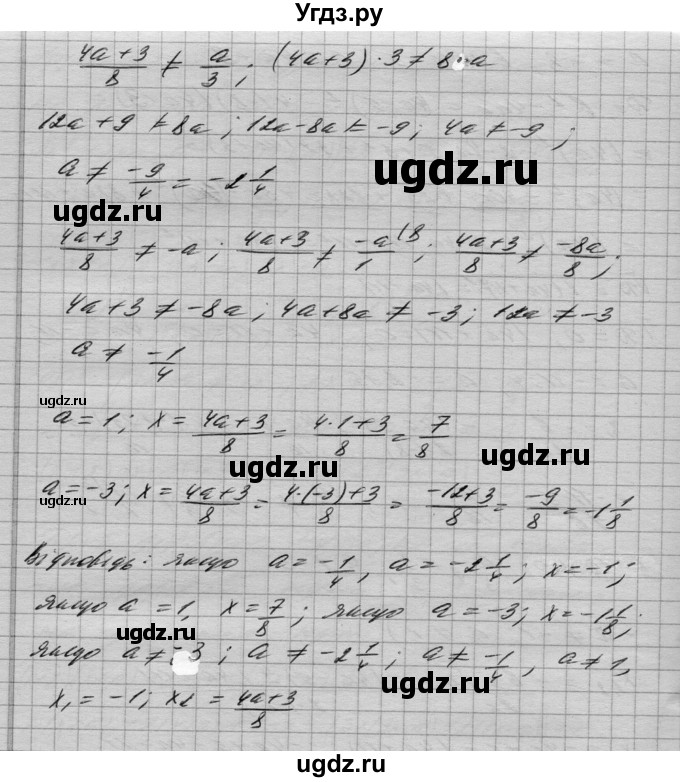 Угдз.ру
(4a+3)/8 ≠ a/3; (4a+3)·3 ≠ 8·a
12a+9 ≠ 8a; 12a-8a ≠ -9; 4a ≠ -9;
ugdz.ru
a ≠ -9/4 = -2 1/4
ugdz.ru
(4a+3)/8 ≠ -a; (4a+3)/8 ≠ -a/1 (8; (4a+3)/8 ≠ -8a/8;
4a+3 ≠ -8a; 4a+8a ≠ -3; 12a ≠ -3
a ≠ -1/4
ugdz.ru
a=1; x = (4a+3)/8 = (4·1+3)/8 = 7/8
ugdz.ru
ugdz.ru
a=-3; x = (4a+3)/8 = (4·(-3)+3)/8 = (-12+3)/8 = -9/8 = -1 1/8
Відповідь: якщо a = -1/4, a = -2 1/4; x = -1;
якщо a = 1, x = 7/8; якщо a = -3; x = -1 1/8;
ugdz.ru
якщо a ≠ -3; a ≠ -2 1/4; a ≠ -1/4, a ≠ 1,
ugdz.ru
x₁ = -1; x₂ = (4a+3)/8
ugdz.ru
ugdz.ru